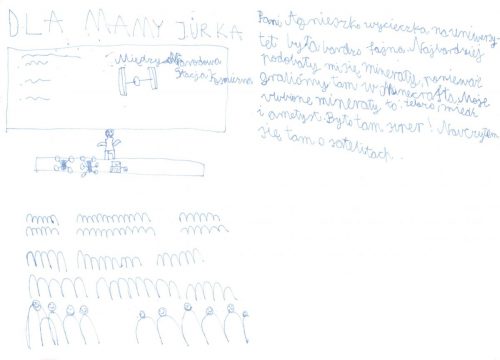 DLA MAMY JÓRKA
Między Narodowa
Stacja Kosmiczna
Pani Agnieszko wycieczka na uniwersy-
tet była bardzo fajna. Najbardziej
podobały mi się minerały, ponieważ
graliśmy tam w Minecrafta. Moje
ulubione minerały to: żelazo, miedź
i ametyst. Było tam super! Nauczyłem
się tam o satelitach.